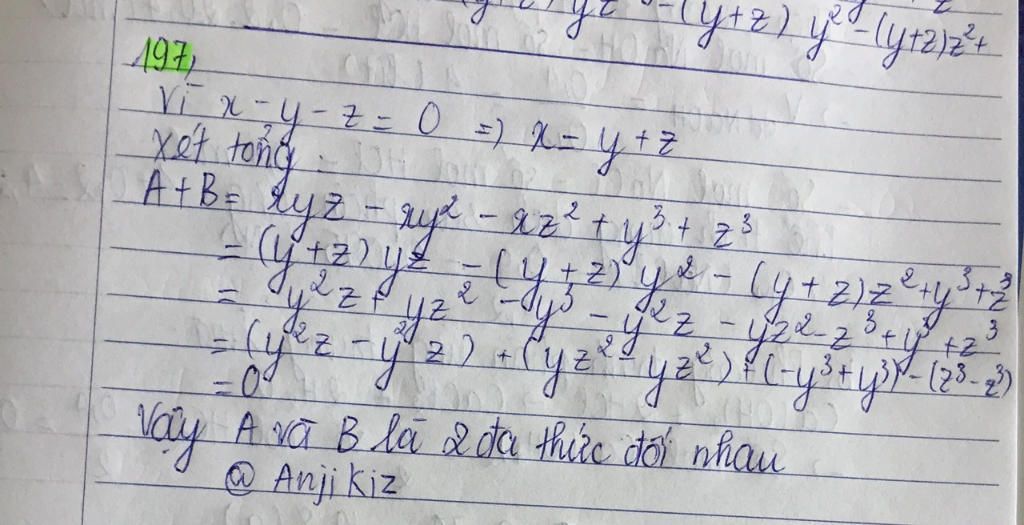 -(y+z) y² -(y+z)z²+
197,
Vì x - y - z = 0 => x = y + z
Xét tổng :
A+B = xyz - xy² - xz² + y³ + z³
= (y+z) yz - (y+z) y² - (y+z)z²+y³+z³
= y²z + yz² - y³ - y²z - yz² - z³ + y³ + z³
= (y²z - y²z) + (yz² - yz²) + (-y³+y³) - (z³ - z³)
= 0
Vậy A và B là 2 đa thức đối nhau
@ Anji Kiz